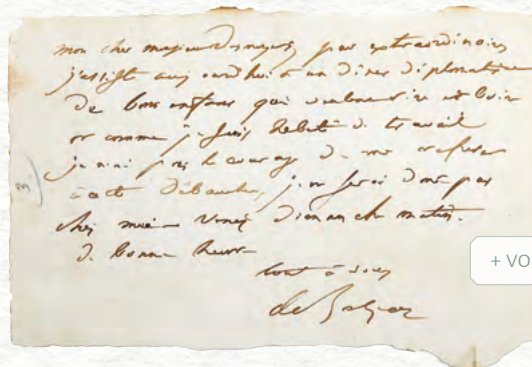 mon cher , par extraordinaire
j'assiste aujourdhui à un diner diplomatique
de bons enfans qui veulent rire et boire
or comme je suis hebété de travail
je n'ai pas le courage de me refuser
à cette débauche, je ne serai donc pas
chez moi - venez dimanche matin.
de bonne heure
tout à vous
de Balzac
+ VO